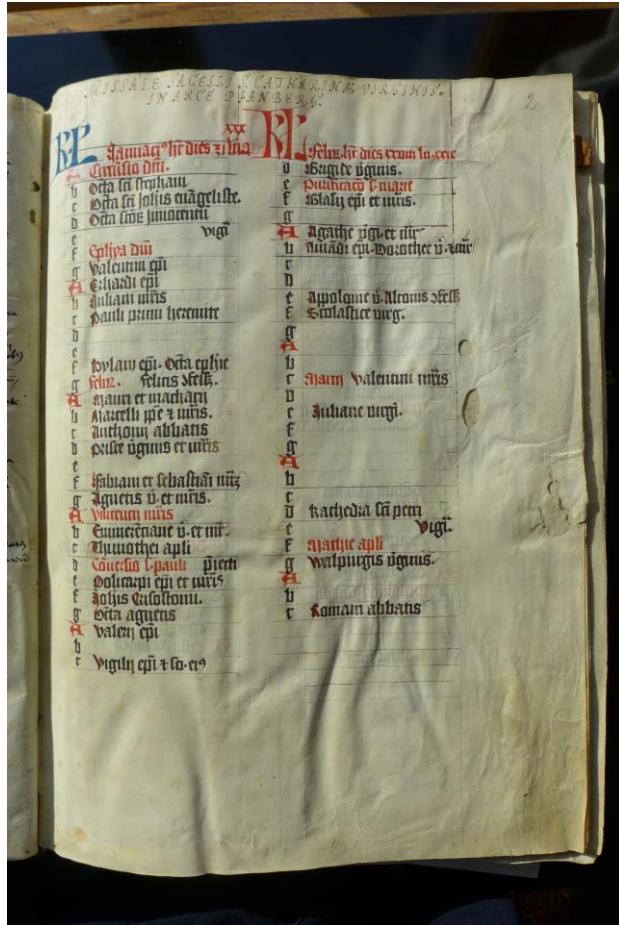 MISSALE SACELLI S. CATHARINÆ VIRGINIS.
IN ARCE PFANBERG.
2
KL
xxx
Januari⁹ ht dies xi luna
A Circūsio dn̄i.
b Octa scī stephani
c Octa scī Johīs euāgeliste.
d Octa scōꝝ Innocentū
e vigī
f Epīhya dn̄i
g valentini epī
A Erhardi epī
b Juliani mr̄is
c Pauli primi heremite
d
e
f hylarij epī. Octa epīhie
g felix. felicis ↄfess.
A Mauri et macharij
b Marcelli pp̄e ⁊ mr̄is.
c Anthonij abbatis
d Prisce v̄ginis et mr̄is
e
f Fabiani et sebastiāi mr̄ꝝ
g Agnetis v̄. et mr̄is.
A vincencij mr̄is
b Emerenciane v̄. et mr̄.
c Thimothei apl̄i
d Cōuersio s. pauli p̄iecti
e Policarpi epī et mr̄is
f Joh̄is Crisostomi.
g Octa agnetis
A valerij epī
b
c Vigilij epī ⁊ so. ei⁹
KL
Febr. ht dies xxviii lu. xxix
d Brigide v̄ginis.
e Purificacō s. marie
f Blasij epī et mr̄is.
g
A Agathe v̄gī. et mr̄
b Amādi epī. Dorothee v̄. ⁊ mr̄
c
d
e Appolonie v̄. Altonis ↄfess
f Scolastice virg.
g
A
b
c Marty Valentini mr̄is
d
e Juliane virgī.
f
g
A
b
c
d Kathedra scī petri
e Vigī.
f Mathie apl̄i
g Walpurgis v̄ginis.
A
b
c Romani abbatis